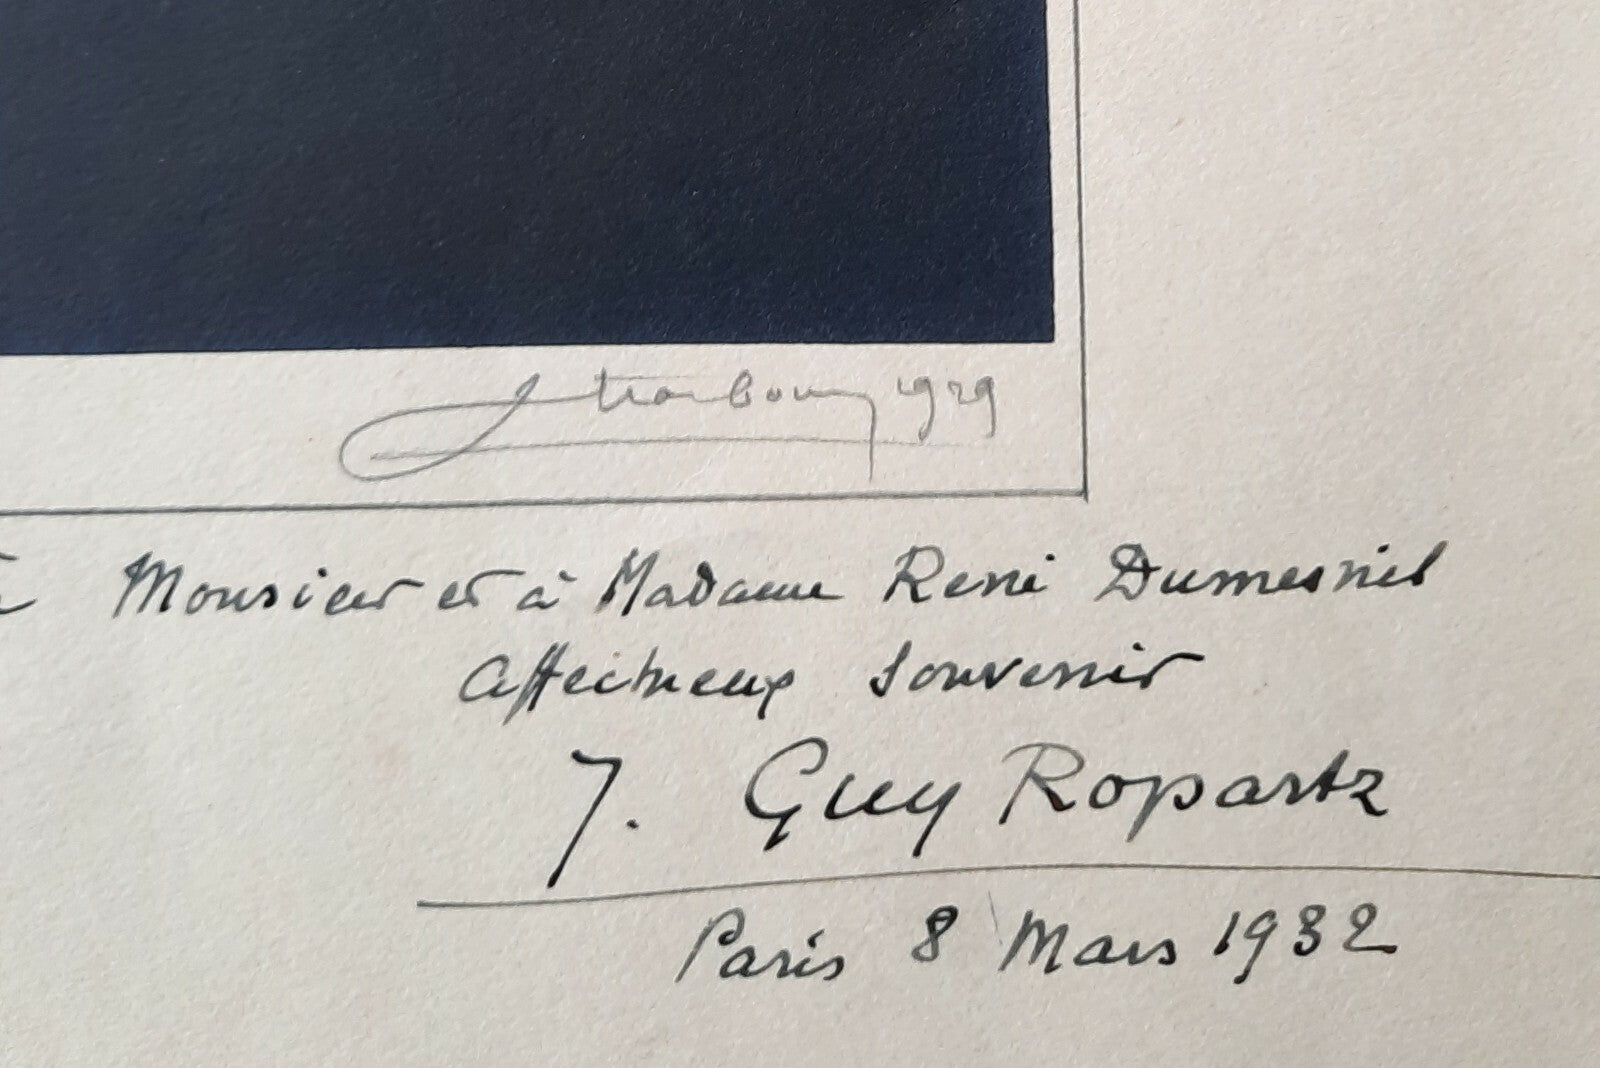 Strasbourg 1929
à Monsieur et à Madame René Dumesnil
affectueux souvenir
J. Guy Ropartz
Paris 8 Mars 1932